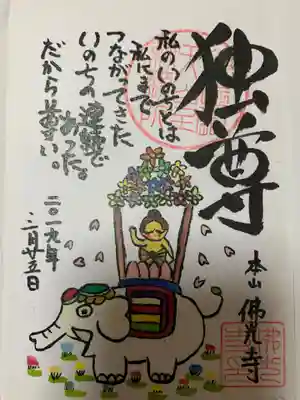 独尊
私のいのちは
私にまで
つながってきた
いのちの連続で
あった。
だから尊い。
二〇一九年
三月廿五日
本山 佛光寺